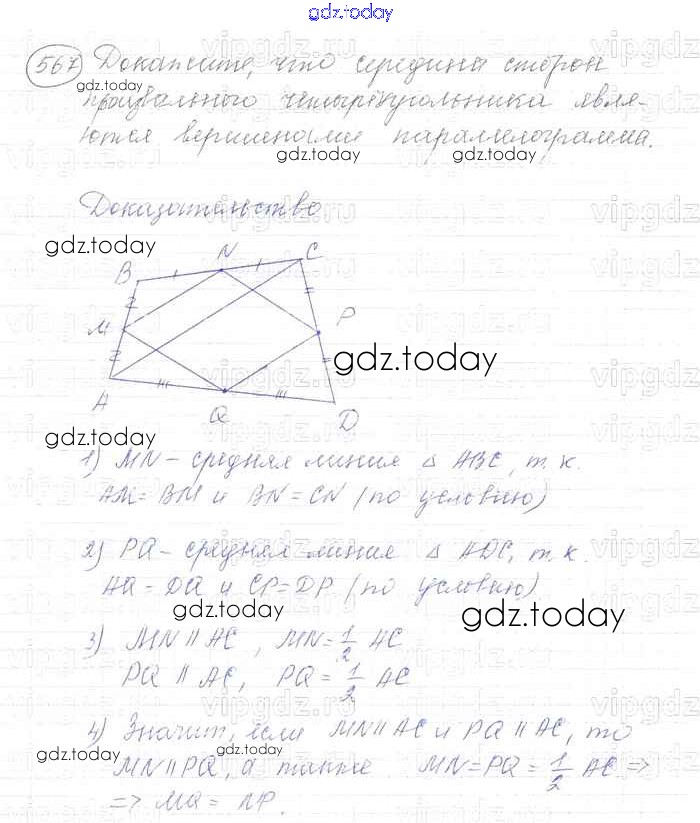 gdz.today
567 Докажите, что середины сторон
gdz.today
произвольного четырёхугольника явля-
ются вершинами параллелограмма.
gdz.today gdz.today
Доказательство
gdz.today
B N C
M P
gdz.today
A Q D
gdz.today
1) MN - средняя линия △ ABC, т.к.
AM = BM и BN = CN (по условию)
2) PQ - средняя линия △ ADC, т.к.
AQ = DQ и CP = DP (по условию)
gdz.today gdz.today
3) MN || AC, MN = 1/2 AC
PQ || AC, PQ = 1/2 AC
4) Значит, если MN || AC и PQ || AC, то
gdz.today gdz.today
MN || PQ, а также MN = PQ = 1/2 AC =>
=> MQ = NP.